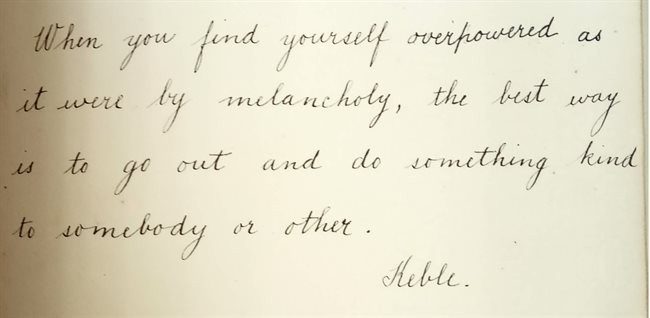 When you find yourself overpowered as
it were by melancholy, the best way
is to go out and do something kind
to somebody or other.
Keble.